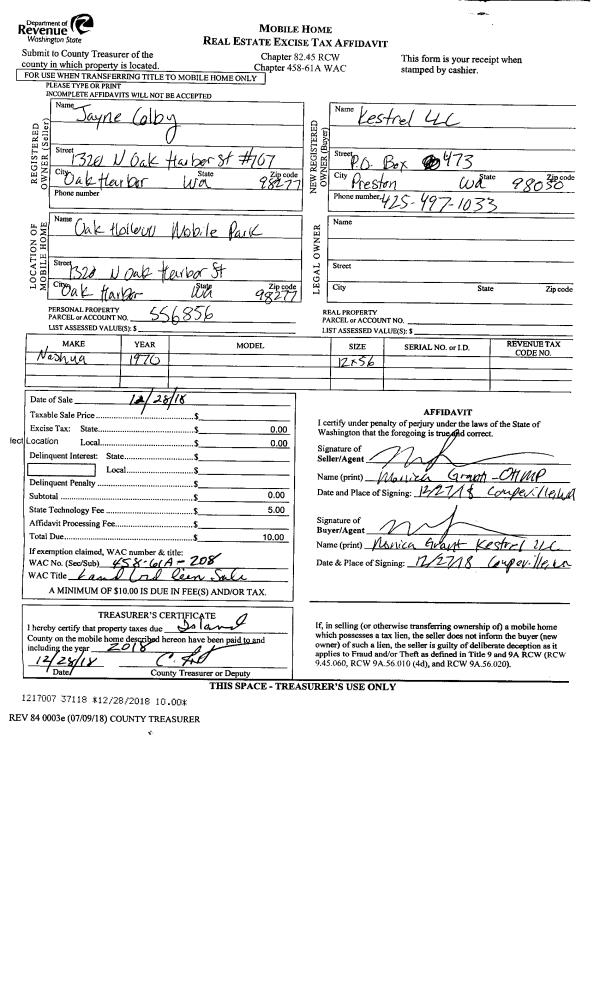 Department of
Revenue
Washington State
MOBILE HOME
REAL ESTATE EXCISE TAX AFFIDAVIT
Submit to County Treasurer of the
county in which property is located.
Chapter 82.45 RCW
Chapter 458-61A WAC
This form is your receipt when
stamped by cashier.
FOR USE WHEN TRANSFERRING TITLE TO MOBILE HOME ONLY
PLEASE TYPE OR PRINT
INCOMPLETE AFFIDAVITS WILL NOT BE ACCEPTED
REGISTERED
OWNER (Seller)
Name
Jayne Colby
Street
1320 N Oak Harbor St #107
City State Zip code
Oak Harbor Wa 98277
Phone number
NEW REGISTERED
OWNER (Buyer)
Name
Kestrel LLC
Street
P.O. Box 473
City State Zip code
Preston Wa 98050
Phone number
425-497-1033
LOCATION OF
MOBILE HOME
Name
Oak Mobile Park
Street
1320 N Oak Harbor St
City State Zip code
Oak Harbor Wa 98277
LEGAL OWNER
Name
Street
City State Zip code
PERSONAL PROPERTY
PARCEL or ACCOUNT NO. 556856
LIST ASSESSED VALUE(S): $
REAL PROPERTY
PARCEL or ACCOUNT NO.
LIST ASSESSED VALUE(S): $
MAKE YEAR MODEL SIZE SERIAL NO. or I.D. REVENUE TAX
CODE NO.
Nashua 1970 12x56
Date of Sale 12/28/18
Taxable Sale Price $
Excise Tax: State $ 0.00
lect Location Local $ 0.00
Delinquent Interest: State $
Local $
Delinquent Penalty $
Subtotal $ 0.00
State Technology Fee $ 5.00
Affidavit Processing Fee $
Total Due $ 10.00
If exemption claimed, WAC number & title:
WAC No. (Sec/Sub) 458-61A-208
WAC Title Land Lord lien Sale
A MINIMUM OF $10.00 IS DUE IN FEE(S) AND/OR TAX.
AFFIDAVIT
I certify under penalty of perjury under the laws of the State of
Washington that the foregoing is true and correct.
Signature of
Seller/Agent
Name (print) Monica Grant - OHMP
Date and Place of Signing: 12/27/18 Coupeville, WA
Signature of
Buyer/Agent
Name (print) Monica Grant Kestrel LLC
Date & Place of Signing: 12/27/18 Coupeville, wa
TREASURER'S CERTIFICATE
I hereby certify that property taxes due Island
County on the mobile home described hereon have been paid to and
including the year 2018
12/28/18
Date County Treasurer or Deputy
If, in selling (or otherwise transferring ownership of) a mobile home
which possesses a tax lien, the seller does not inform the buyer (new
owner) of such a lien, the seller is guilty of deliberate deception as it
applies to Fraud and/or Theft as defined in Title 9 and 9A RCW (RCW
9.45.060, RCW 9A.56.010 (4d), and RCW 9A.56.020).
THIS SPACE - TREASURER'S USE ONLY
1217007 37118 *12/28/2018 10.00*
REV 84 0003e (07/09/18) COUNTY TREASURER